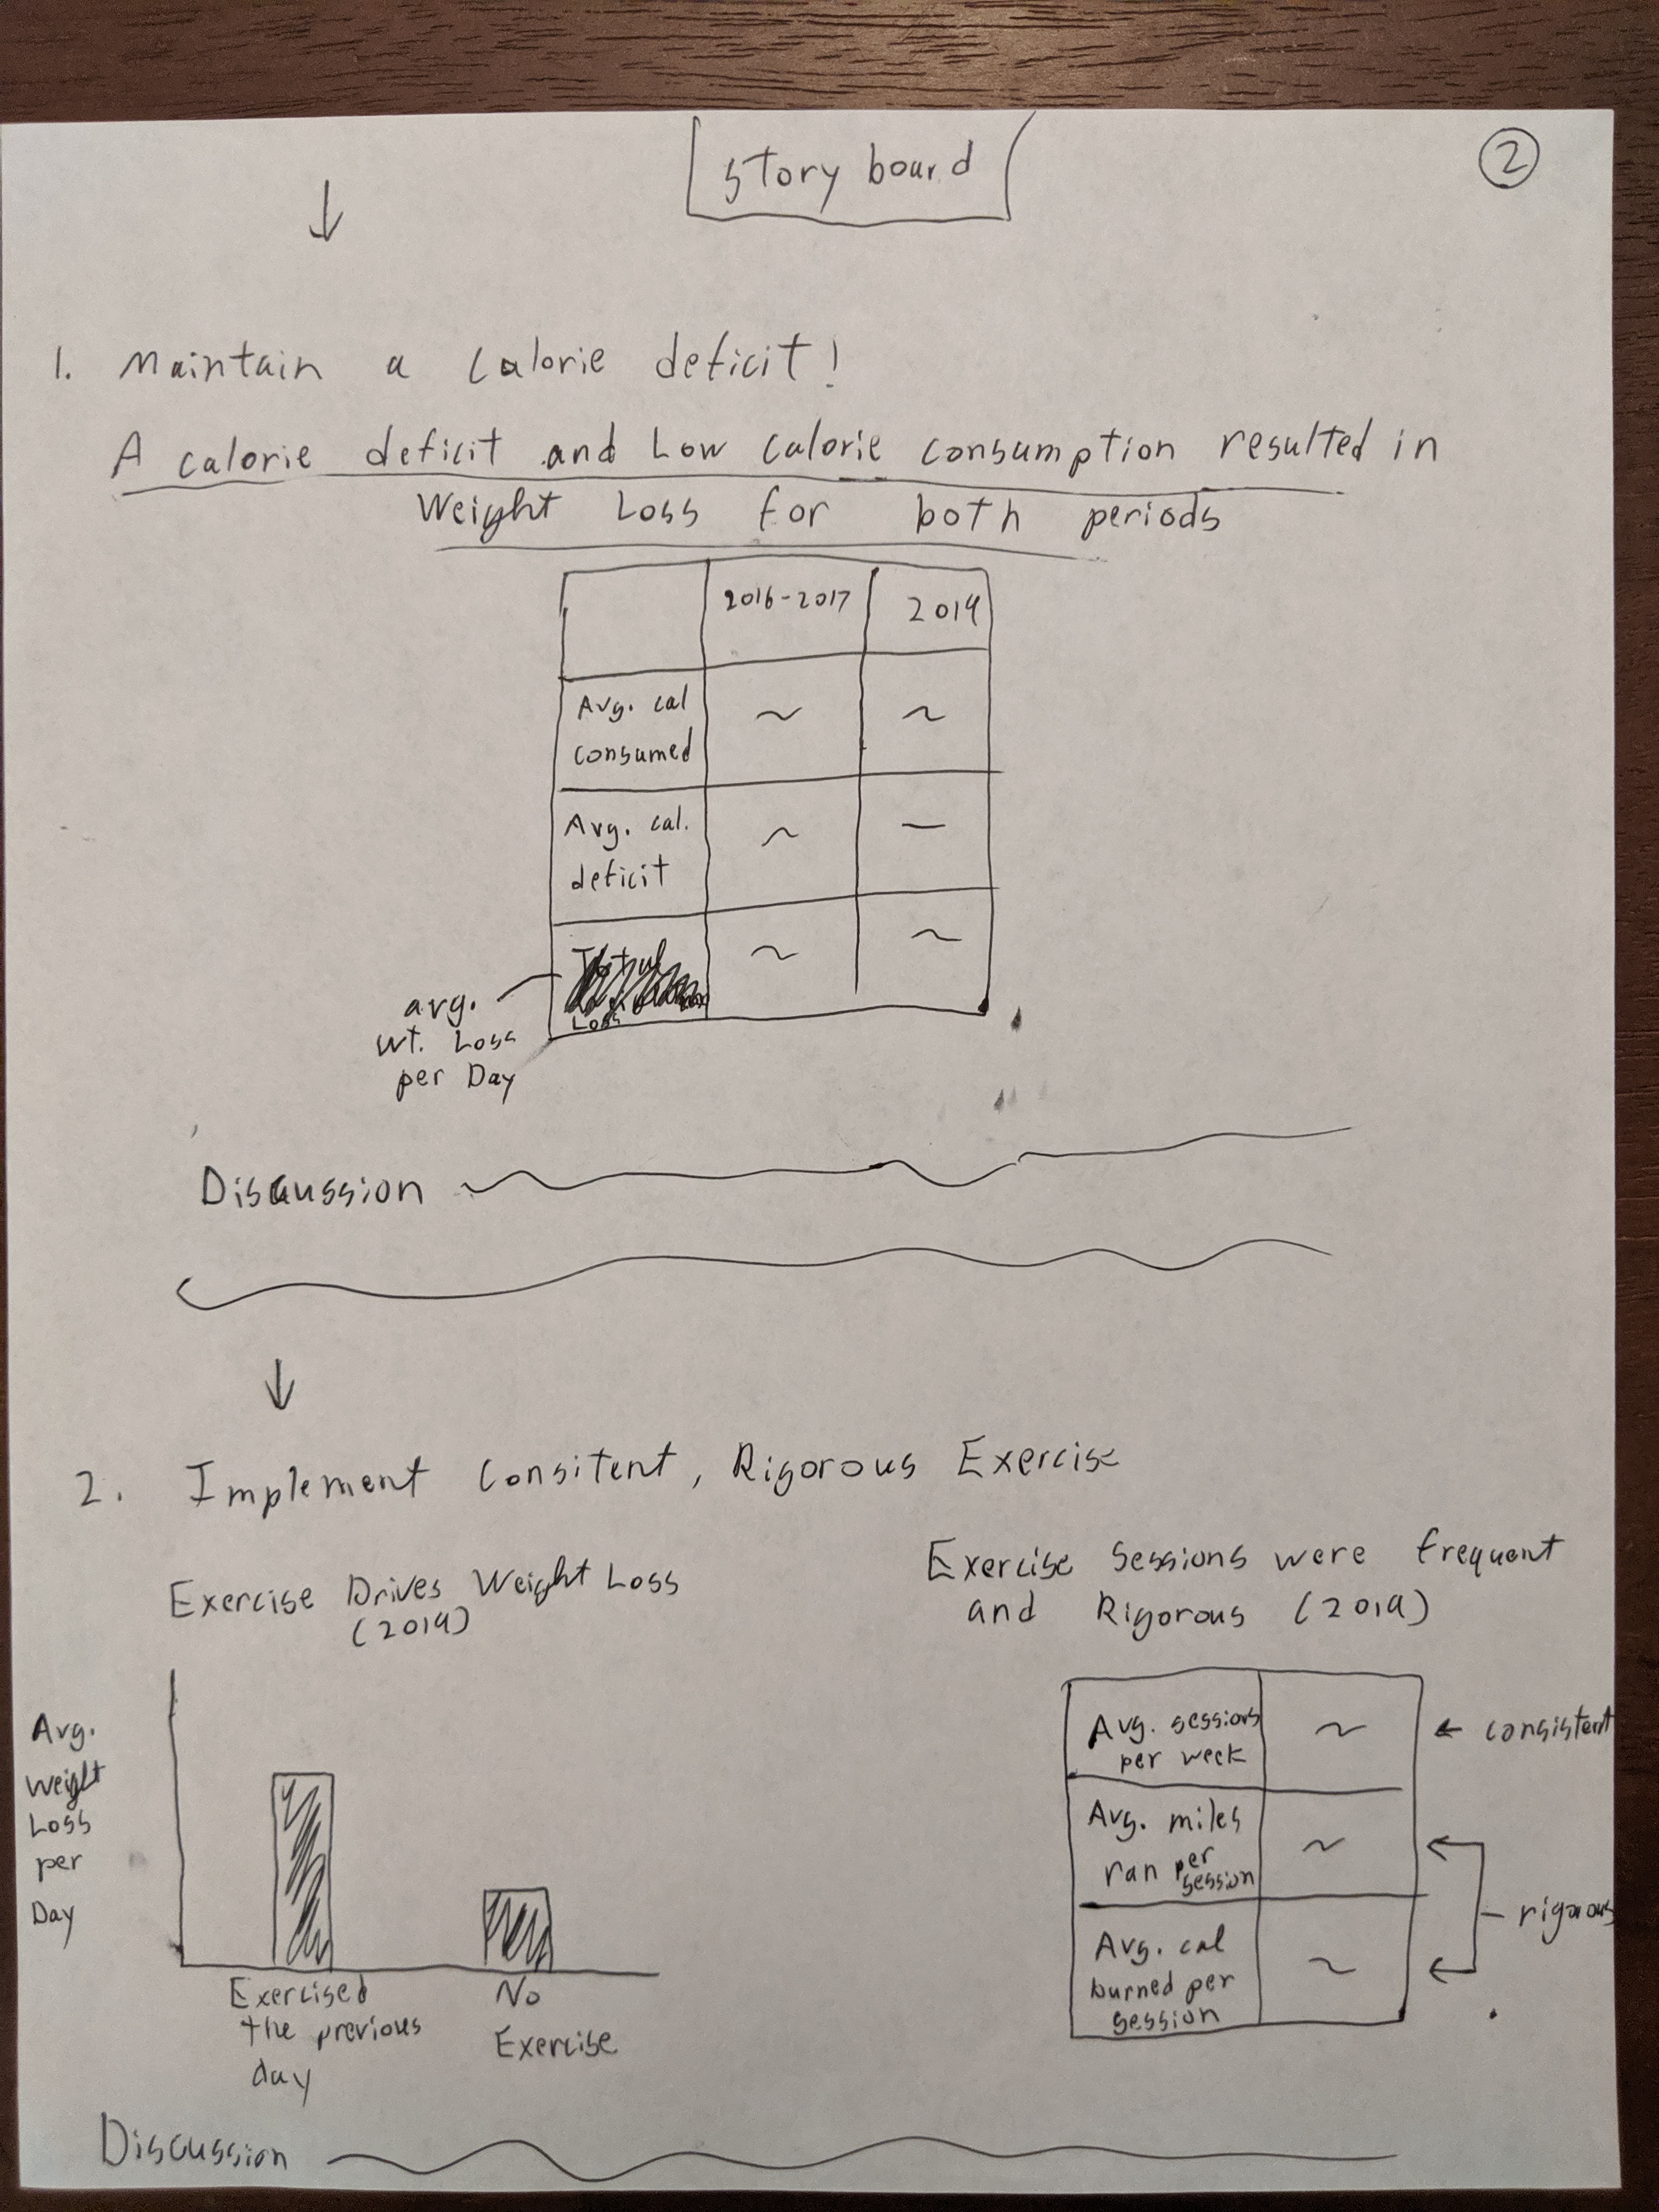 story board
2
1. Maintain a calorie deficit!
A calorie deficit and Low calorie consumption resulted in
Weight Loss for both periods
2016-2017 2019
Avg. cal
consumed
~ ~
Avg. cal.
deficit
~ —
Total
Loss
~ ~
avg.
wt. Loss
per Day
Discussion
2. Implement Consitent, Rigorous Exercise
Exercise Drives Weight Loss
(2019)
Avg.
Weight
Loss
per
Day
Exercised
the previous
day
No
Exercise
Exercise Sessions were frequent
and Rigorous (2019)
Avg. sessions
per week
~ ← consistent
Avg. miles
ran per
session
~
Avg. cal
burned per
session
~
rigorous
Discussion